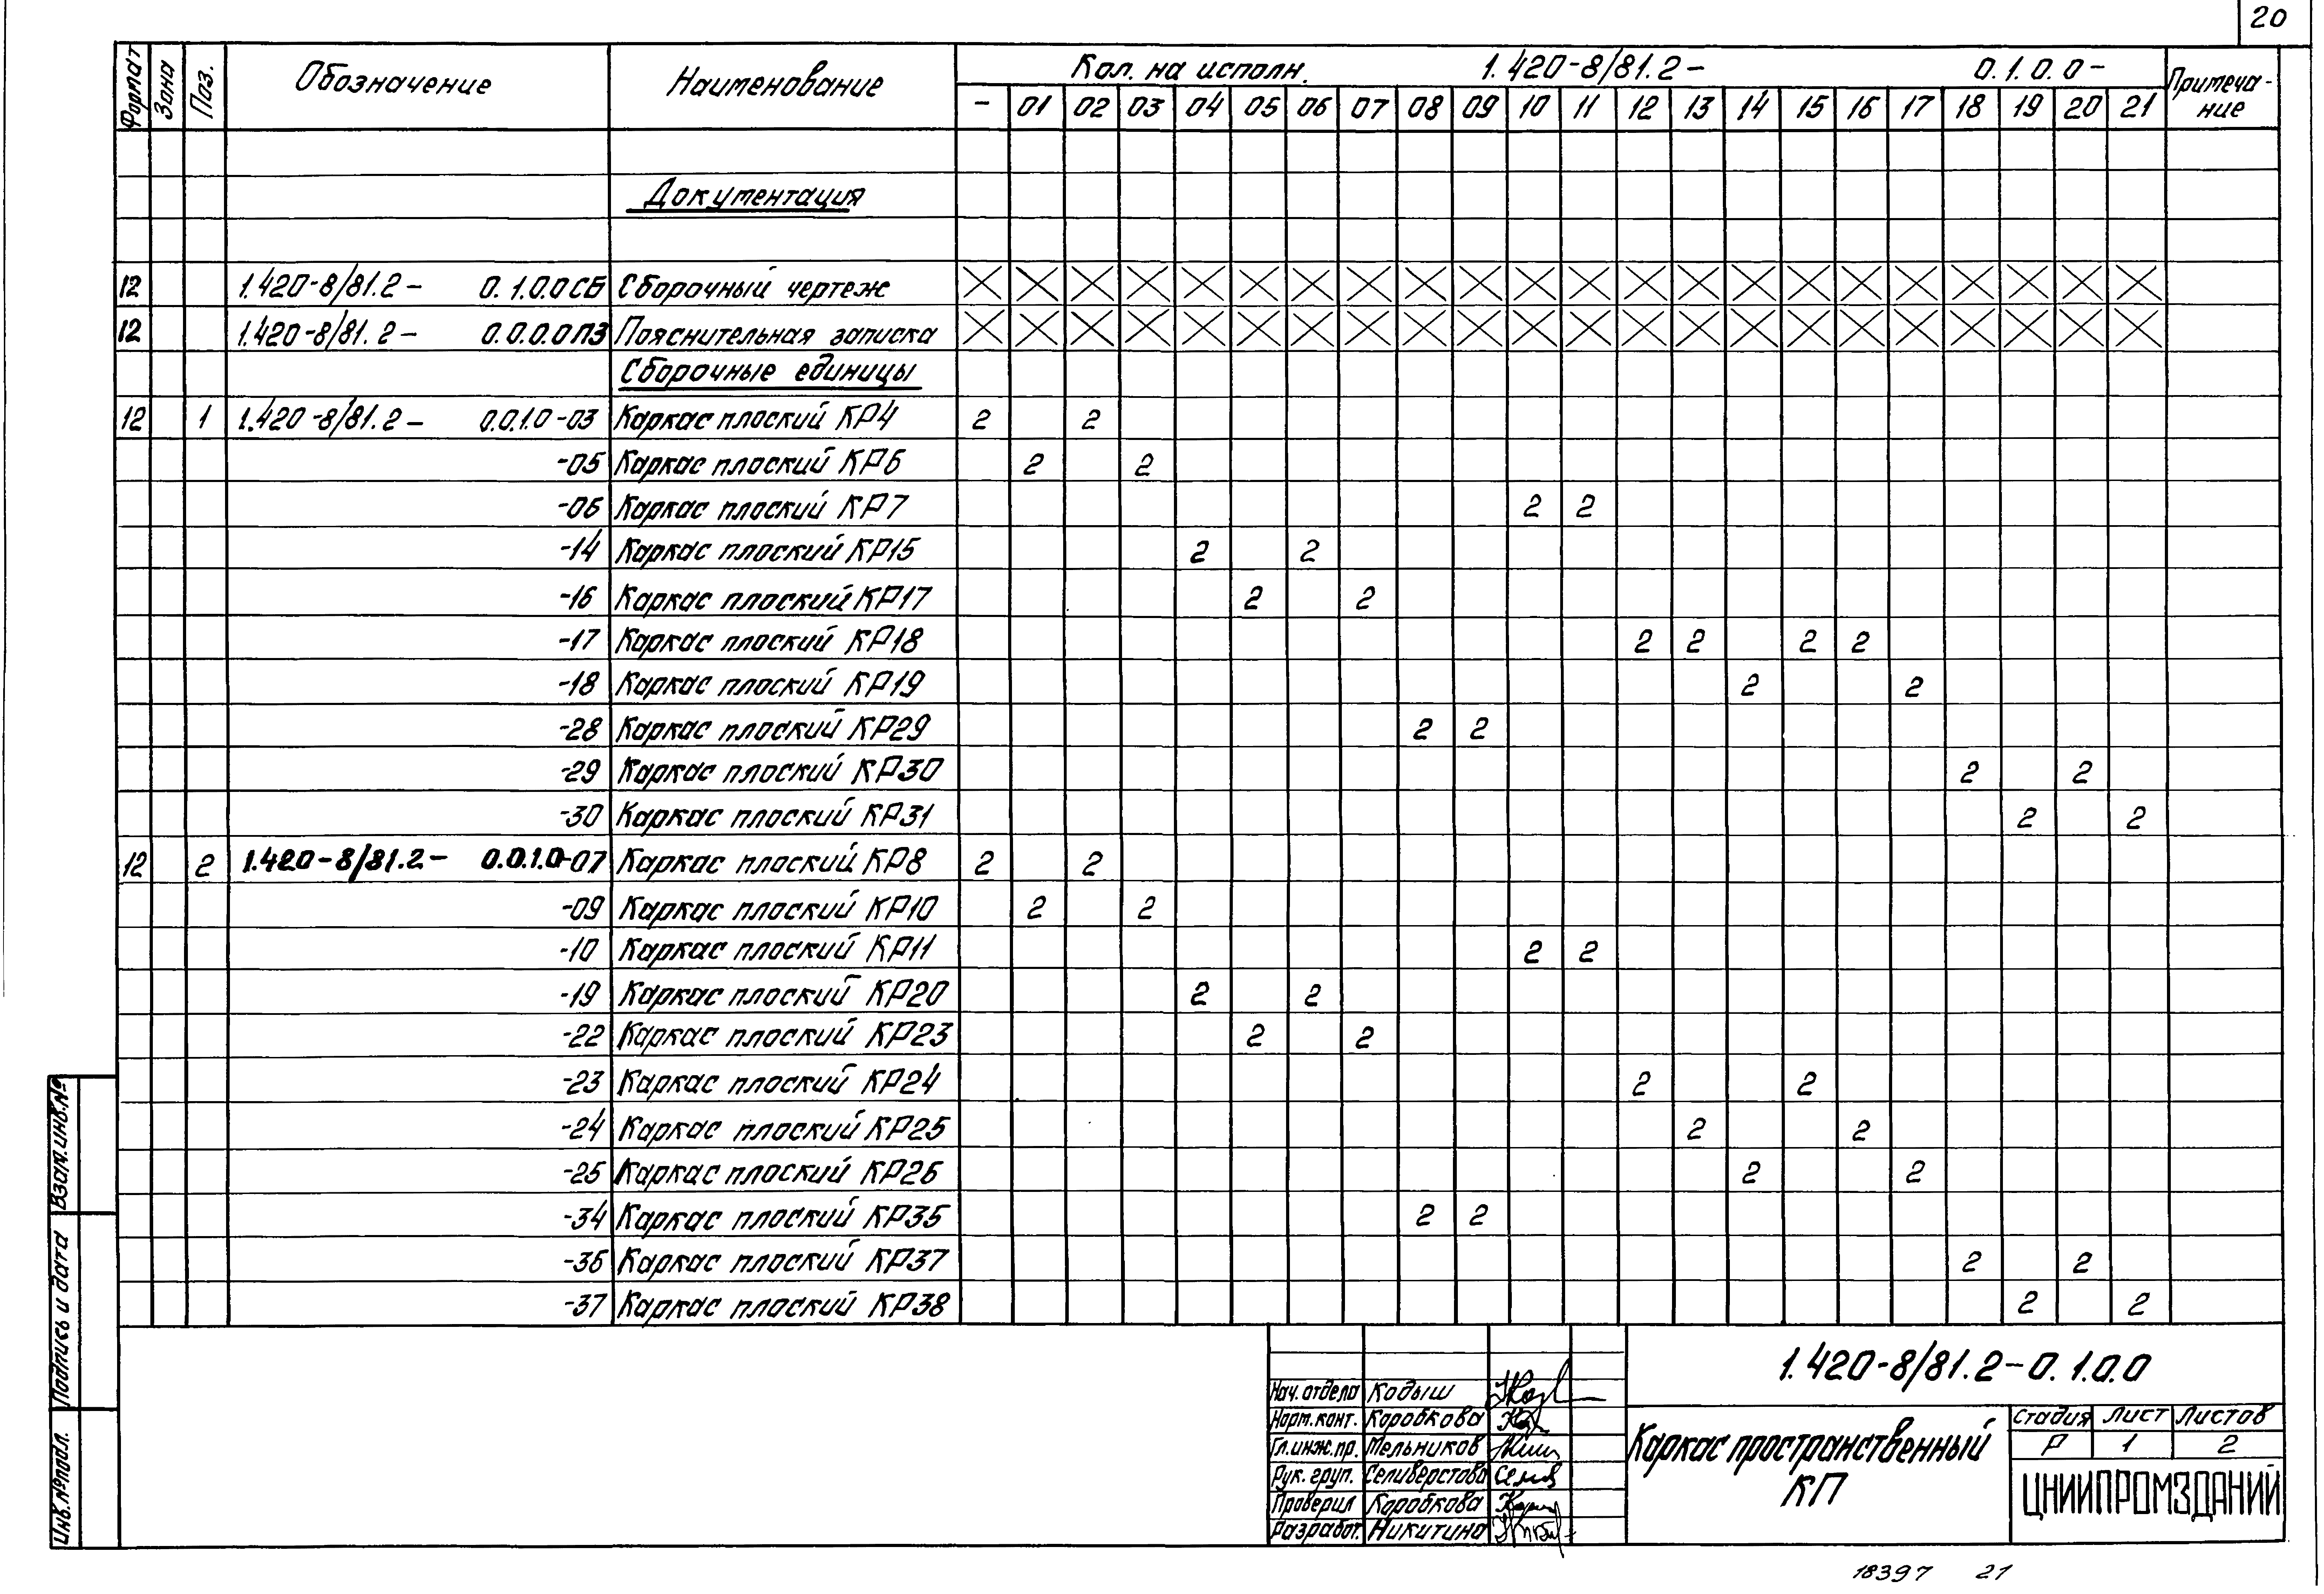 20
Формат Зона Поз. Обозначение Наименование Кол. на исполн. 1.420-8/81.2- 0.1.0.0- Примеча-
ние
- 01 02 03 04 05 06 07 08 09 10 11 12 13 14 15 16 17 18 19 20 21
Документация
12 1.420-8/81.2- 0.1.0.0СБ Сборочный чертеж
12 1.420-8/81.2- 0.0.0.0ПЗ Пояснительная записка
Сборочные единицы
12 1 1.420-8/81.2- 0.0.1.0-03 Каркас плоский КР4 2 2
-05 Каркас плоский КР6 2 2
-06 Каркас плоский КР7 2 2
-14 Каркас плоский КР15 2 2
-16 Каркас плоский КР17 2 2
-17 Каркас плоский КР18 2 2 2 2
-18 Каркас плоский КР19 2 2
-28 Каркас плоский КР29 2 2
-29 Каркас плоский КР30 2 2
-30 Каркас плоский КР31 2 2
12 2 1.420-8/81.2- 0.0.1.0-07 Каркас плоский КР8 2 2
-09 Каркас плоский КР10 2 2
-10 Каркас плоский КР11 2 2
-19 Каркас плоский КР20 2 2
-22 Каркас плоский КР23 2 2
-23 Каркас плоский КР24 2 2
-24 Каркас плоский КР25 2 2
-25 Каркас плоский КР26 2 2
-34 Каркас плоский КР35 2 2
-36 Каркас плоский КР37 2 2
-37 Каркас плоский КР38 2 2
Взам.инв.№
Подпись и дата
Инв.№подл.
Нач.отдела Кодыш
Норм.конт. Коробкова
Гл.инж.пр. Мельников
Рук. груп. Селиверстова
Проверил Коробкова
Разработ. Никитина
1.420-8/81.2-0.1.0.0
Каркас пространственный
КП
Стадия Лист Листов
Р 1 2
ЦНИИПРОМЗДАНИЙ
18397 21